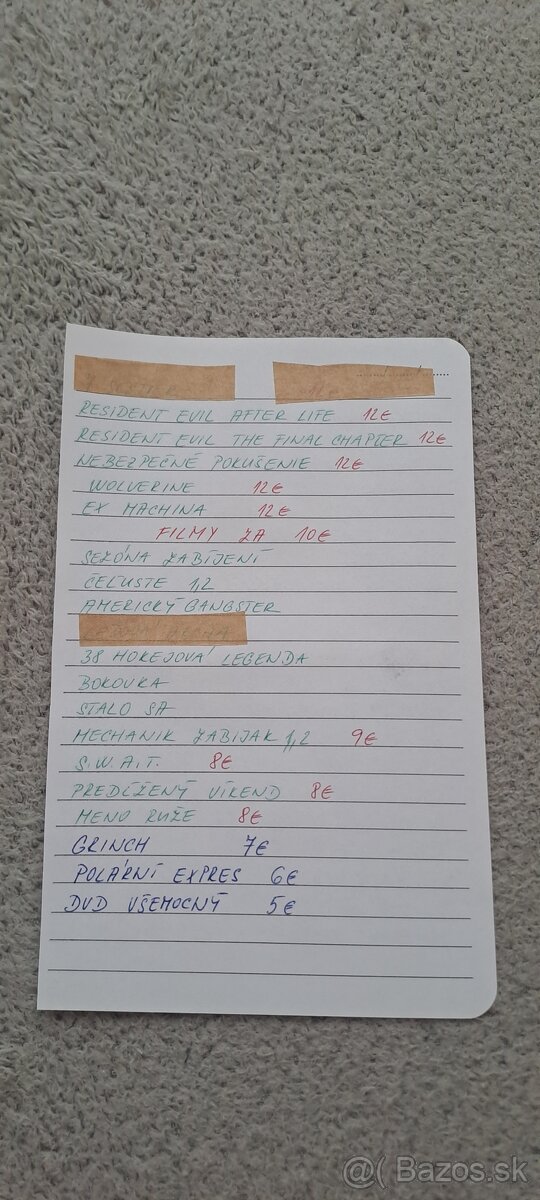 RESIDENT EVIL AFTER LIFE 12€
RESIDENT EVIL THE FINAL CHAPTER 12€
NEBEZPEČNÉ POKUŠENIE 12€
WOLVERINE 12€
EX MACHINA 12€
FILMY ZA 10€
SEZÓNA ZABÍJENÍ
ČEĽUSTE 1,2
AMERICKÝ GANGSTER
38 HOKEJOVÁ LEGENDA
BOKOVKA
STALO SA
MECHANIK ZABIJAK 1,2 9€
S.W.A.T. 8€
PREDĹŽENÝ VÍKEND 8€
MENO RUŽE 8€
GRINCH 7€
POLÁRNÍ EXPRES 6€
DVD VŠEMOCNÝ 5€
@( Bazos.sk